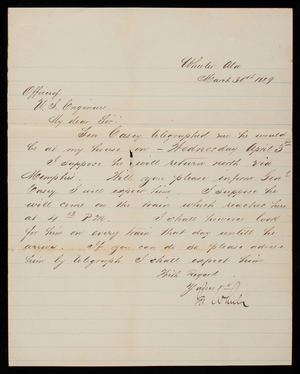 Wheeler, Ala
March 30th 1889
Office of
U.S. Engineer
My dear Sir,
Gen Casey telegraphed me he would
be at my house on Wednesday April 3d
I suppose he will return north via
Memphis. Will you please inform Genl
Casey I will expect him. I suppose he
will come on the train which reaches here
at 4 P.M. I shall however look
for him on every train that day untill he
arrives. If you can do so please advise
him by telegraph I shall expect him
With Regard
Yours
J Wheeler